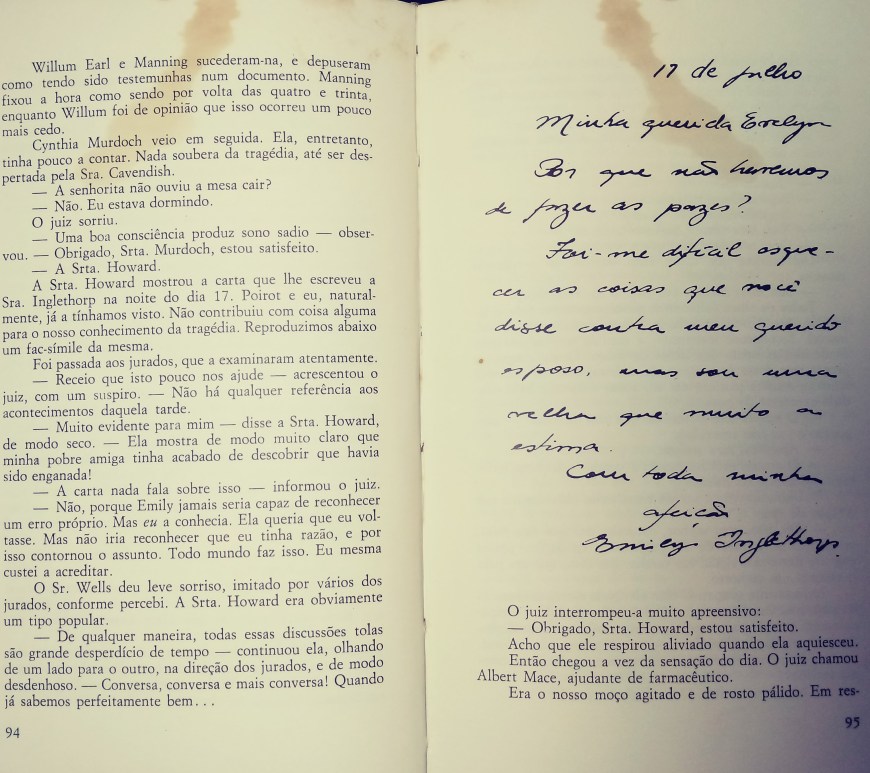 Willum Earl e Manning sucederam-na, e depuseram
como tendo sido testemunhas num documento. Manning
fixou a hora como sendo por volta das quatro e trinta,
enquanto Willum foi de opinião que isso ocorreu um pouco
mais cedo.
Cynthia Murdoch veio em seguida. Ela, entretanto,
tinha pouco a contar. Nada soubera da tragédia, até ser des-
pertada pela Sra. Cavendish.
— A senhorita não ouviu a mesa cair?
— Não. Eu estava dormindo.
O juiz sorriu.
— Uma boa consciência produz sono sadio — obser-
vou. — Obrigado, Srta. Murdoch, estou satisfeito.
— A Srta. Howard.
A Srta. Howard mostrou a carta que lhe escreveu a
Sra. Inglethorp na noite do dia 17. Poirot e eu, natural-
mente, já a tínhamos visto. Não contribuiu com coisa alguma
para o nosso conhecimento da tragédia. Reproduzimos abaixo
um fac-símile da mesma.
Foi passada aos jurados, que a examinaram atentamente.
— Receio que isto pouco nos ajude — acrescentou o
juiz, com um suspiro. — Não há qualquer referência aos
acontecimentos daquela tarde.
— Muito evidente para mim — disse a Srta. Howard,
de modo seco. — Ela mostra de modo muito claro que
minha pobre amiga tinha acabado de descobrir que havia
sido enganada!
— A carta nada fala sobre isso — informou o juiz.
— Não, porque Emily jamais seria capaz de reconhecer
um erro próprio. Mas eu a conhecia. Ela queria que eu vol-
tasse. Mas não iria reconhecer que eu tinha razão, e por
isso contornou o assunto. Todo mundo faz isso. Eu mesma
custei a acreditar.
O Sr. Wells deu leve sorriso, imitado por vários dos
jurados, conforme percebi. A Srta. Howard era obviamente
um tipo popular.
— De qualquer maneira, todas essas discussões tolas
são grande desperdício de tempo — continuou ela, olhando
de um lado para o outro, na direção dos jurados, e de modo
desdenhoso. — Conversa, conversa e mais conversa! Quando
já sabemos perfeitamente bem...
94
17 de julho
Minha querida Evelyn
Por que não havemos
de fazer as pazes?
Foi-me difícil esque-
cer as coisas que você
disse contra meu querido
esposo, mas sou uma
velha que muito a
estima.
Com toda minha
afeição
Emily Inglethorp.
O juiz interrompeu-a muito apreensivo:
— Obrigado, Srta. Howard, estou satisfeito.
Acho que ele respirou aliviado quando ela aquiesceu.
Então chegou a vez da sensação do dia. O juiz chamou
Albert Mace, ajudante de farmacêutico.
Era o nosso moço agitado e de rosto pálido. Em res-
95